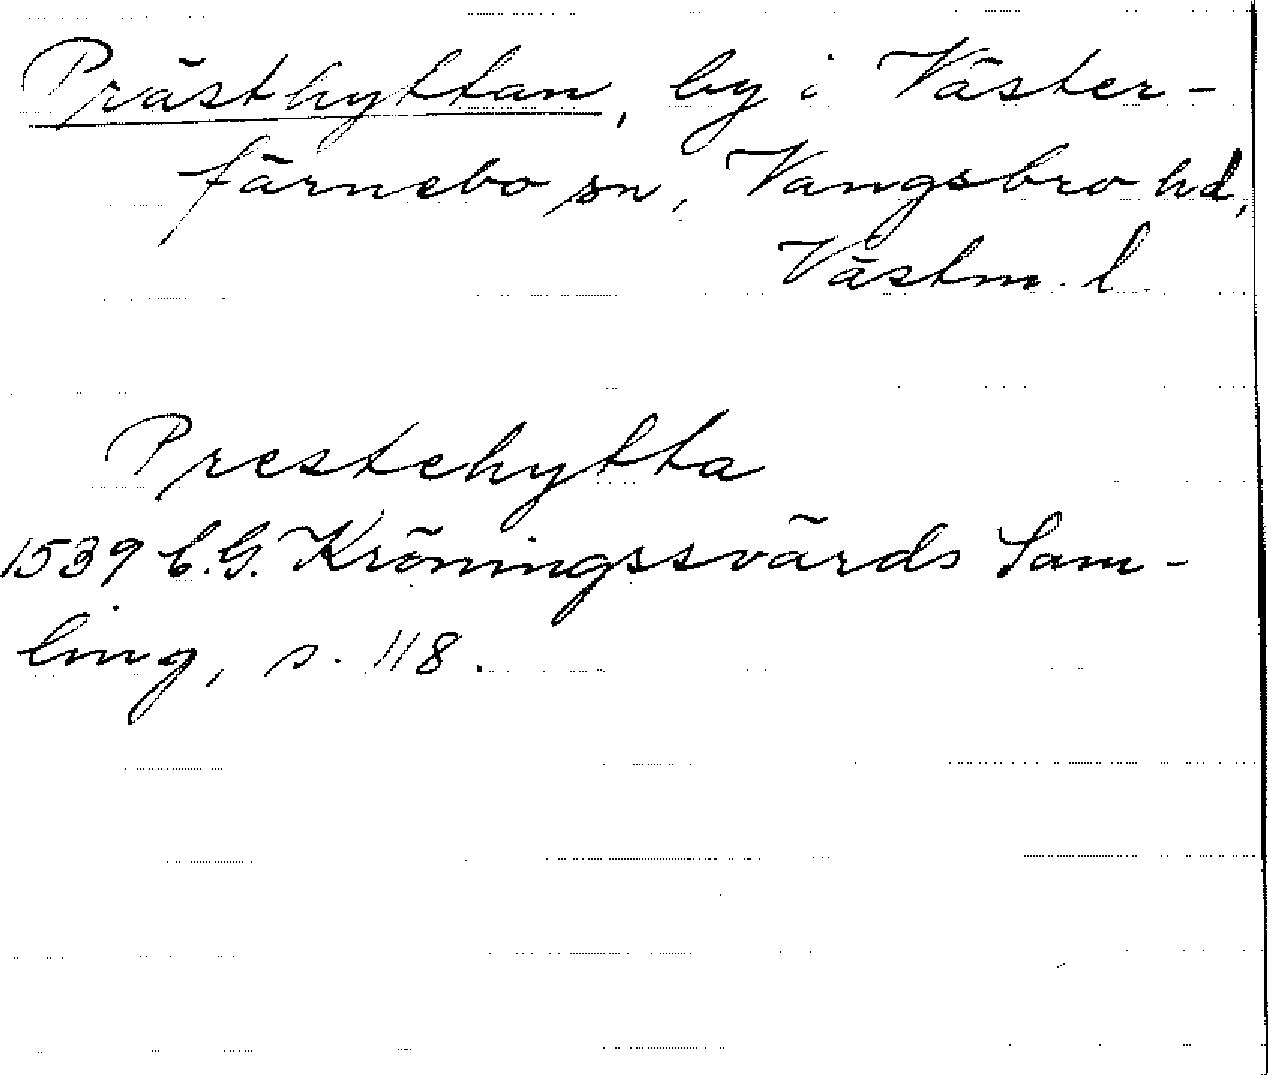 Prästhyttan, by i Väster-
färnebo sn, Vangsbro hd,
Västm. l
Prestehytta
1539 C.G. Kröningssvärds Sam-
ling, s. 118.